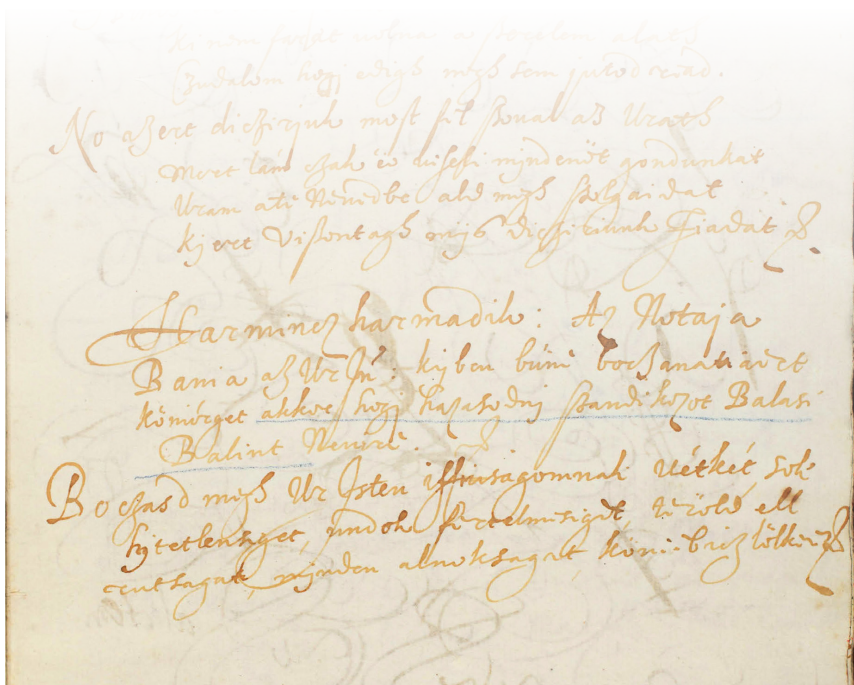 Czudalom hogj edigh megh sem jutod
No azert diczirjuk most fel szoual az Urath
Mert lám czak eö uiseli mjndenöt gondunkat
Uram ate Neuedbe ald megh szolgaidat
kjert Viszontagh mys dicziriunk Fiadat
Harmincz harmadik: Az Notaja
Bania az Ur Jn: kyben büne boczanatiaért
köniörget akkor hogj hazasodnj szandikozot Balasi
Balint Neuire.
Boczasd megh Ur Jsten iffiusagomnak Uétkét, sok
hÿtetlenseget, undok fertelmiségét, töröld ell
rutsagat, mjnden alnoksagat, könniebicz lölkem